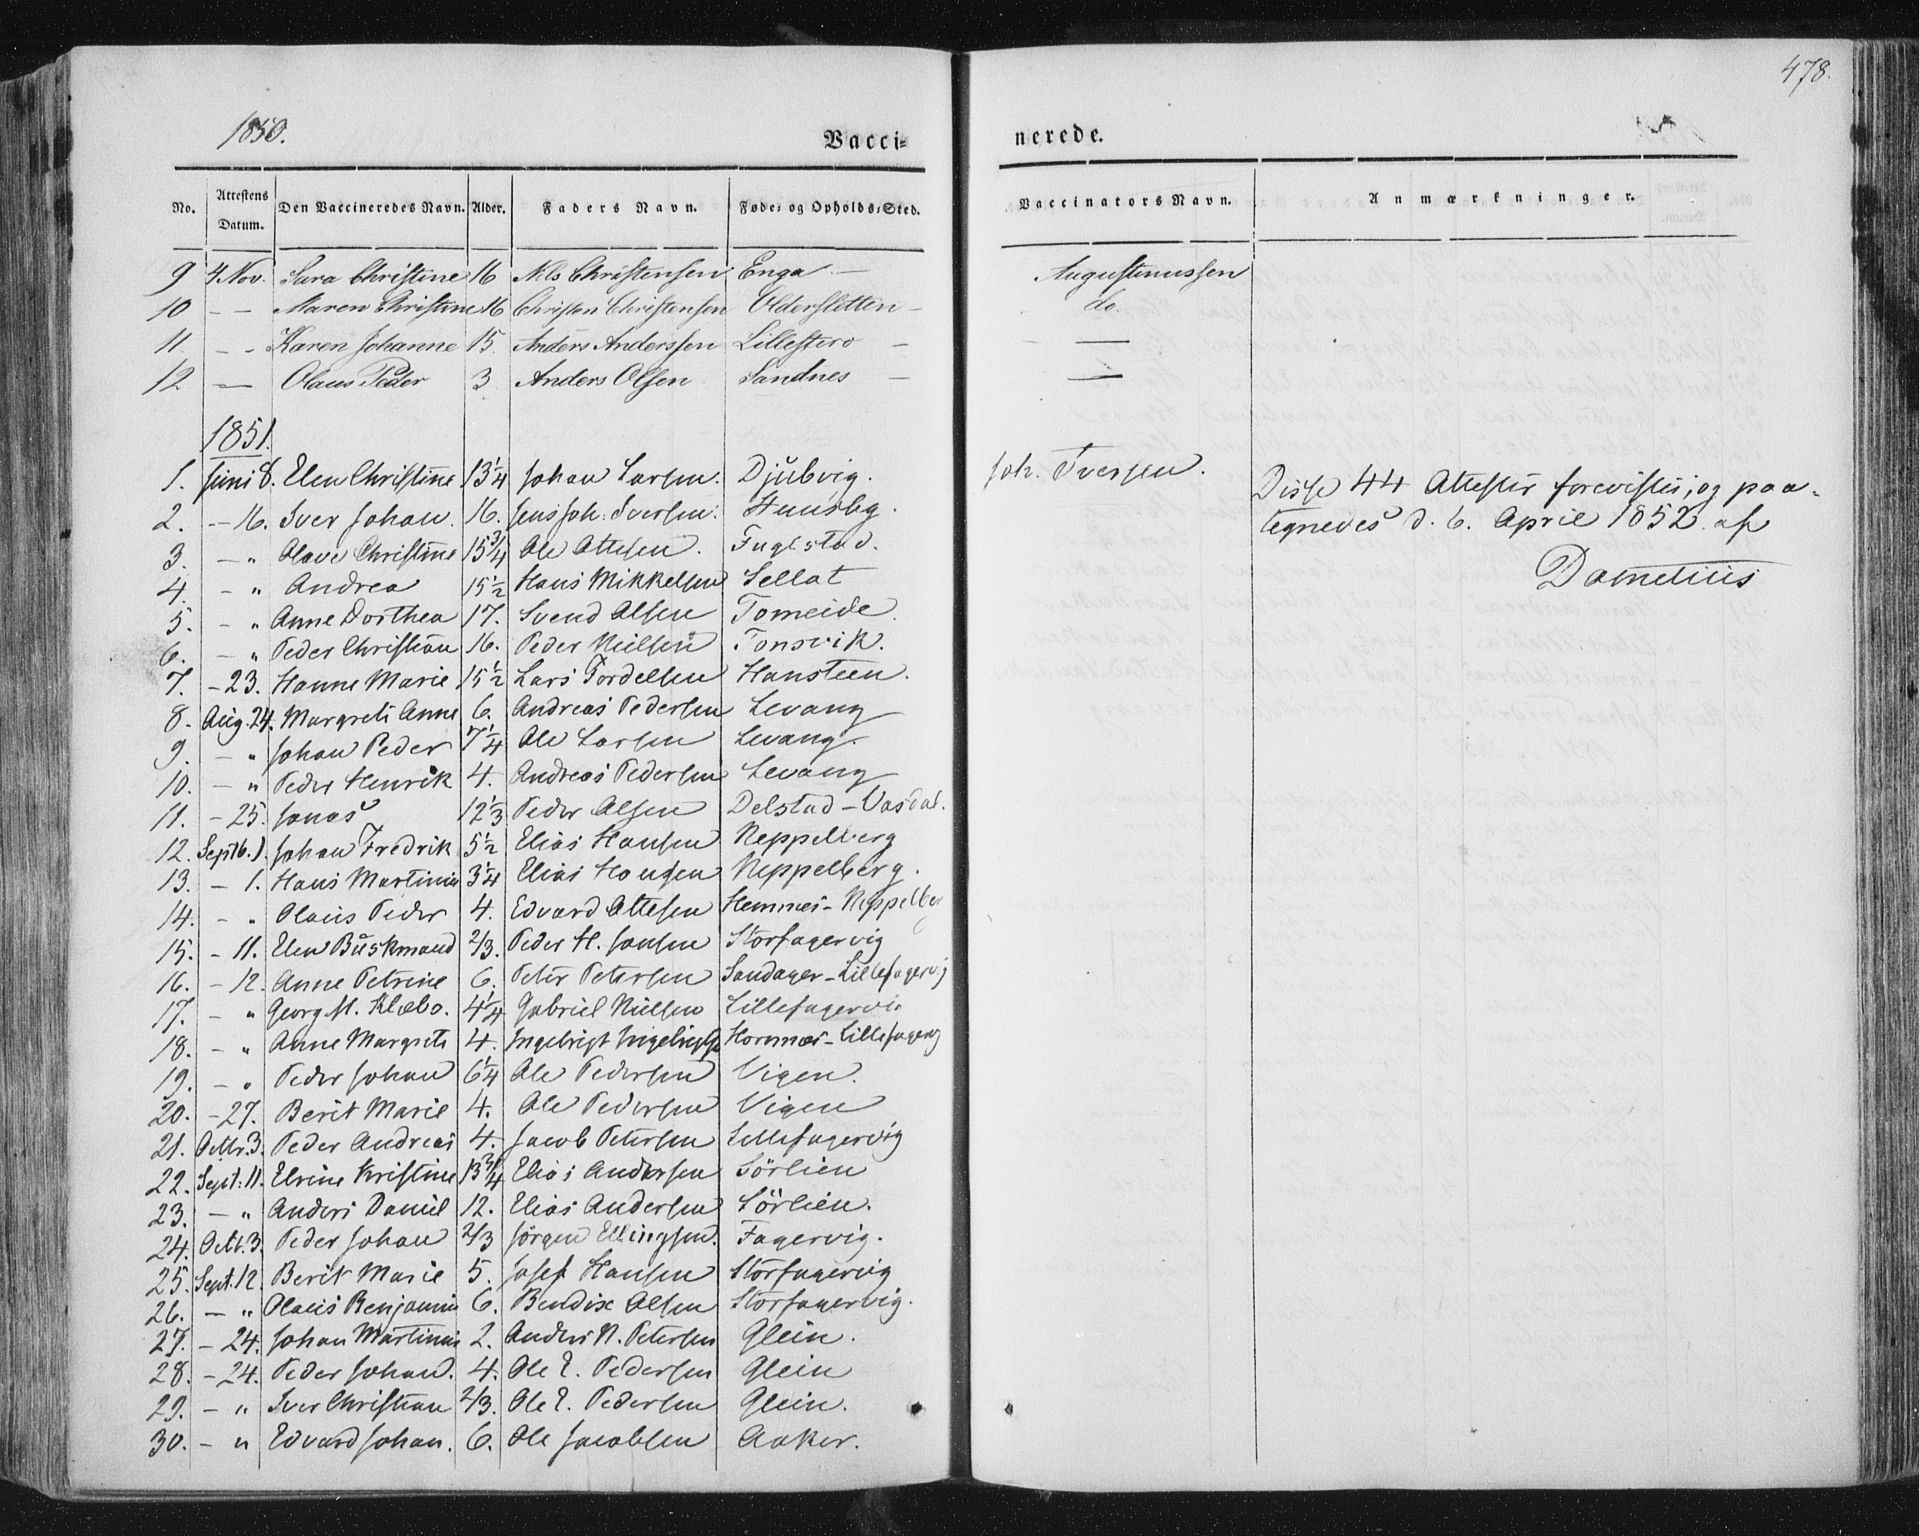 478.
1850.
Vacci-
nerede.
No. Attestens Datum. Den Vaccineredes Navn. Alder. Faders Navn. Føde- og Opholds-Sted. Vaccinators Navn. Anmærkninger.
9 4 Nov. Sara Christine 16 Nils Christensen Enga — Augustinussen
10 - - Maren Christine 16 Christen Christensen Oldersletten - do.
11 - - Karen Johanne 15 Anders Anderssen Lillestero - —
12 — Olaus Peder 3 Anders Olsen Sandnes - —
1851.
1. Juni 8. Elen Christine 13 1/4 Johan Larsen. Djubvig. Joh. Iversen.
2. - 16. Iver Johan. 16. Jens Joh. Iversen. Hunsbg.
3. - " Olave Christine 15 3/4 Ole Ottesen. Fuglstad.
4. - " Andrea 15 1/2 Hans Mikkelsen Sellat
5. - " Anne Dorthea 17. Svend Olsen Tomeide.
6. - " Peder Christian 16. Peder Nielsen Tonsvik.
7. - 23. Hanne Marie 15 1/2 Lars Tordelsen Hansteen.
8. Aug. 24. Margreti Anne 6. Andreas Pedersen Levang
9. - " Johan Peder 7 1/4 Ole Larsen Levang.
10. - " Peder Henrik 4. Andreas Pedersen Levang
11. - 25. Jonas 12 1/3 Peder Olsen Delstad - Vasdal.
12. Septb. 1. Johan Fredrik 5 1/2 Elias Hansen Neppelberg
13. - 1. Hans Martinus 3 1/4 Elias Hansen Neppelberg.
14. - " Olaus Peder 4. Edvard Ottesen Hemnes - Neppelber
15. - 11. Elen Buskmand 2/3. Peder H. Jansen Storfagervig
16. - 12. Anne Petrine 6. Peter Petersen Sandager - Lillefagervig
17. - " Georg M. Klæbo. 4 1/4 Gabriel Nielsen Lillefagervi
18. - " Anne Margreti 4. Ingebrigt Ingebrigts Hornnæs - Lillefagervg
19. - " Peder Johan 6 1/4 Ole Pedersen Vigen.
20. - 27. Berit Marie 4. Ole Pedersen Vigen
21. Octbr. 3. Peder Andreas 4. Jacob Petersen Lillefagervig
22. Sept. 11. Elrine Kristine 13 3/4 Elias Andersen Sörlien
23. - " Anders Daniel 12. Elias Andersen Sörlien.
24. Octb. 3. Peder Johan 2/3 Jörgen Ellingsen. Fagervig.
25. Sept. 12. Berit Marie 5. Josef Hansen Storfagervig
26. - " Olaus Benjamin 6. Bendix Olsen Storfagervig.
27. - 24. Johan Martinus 2. Anders N. Petersen Glein.
28. - 24. Peder Johan. 4. Ole E. Pedersen Glein
29. - " Iver Christian 2/3. Ole E. Pedersen Glein.
30. - " Edvard Johan. 6. Ole Jacobsen Aaker.
Disse 44 Attester forevistes, og paa-
tegnedes d. 6. April 1852 af